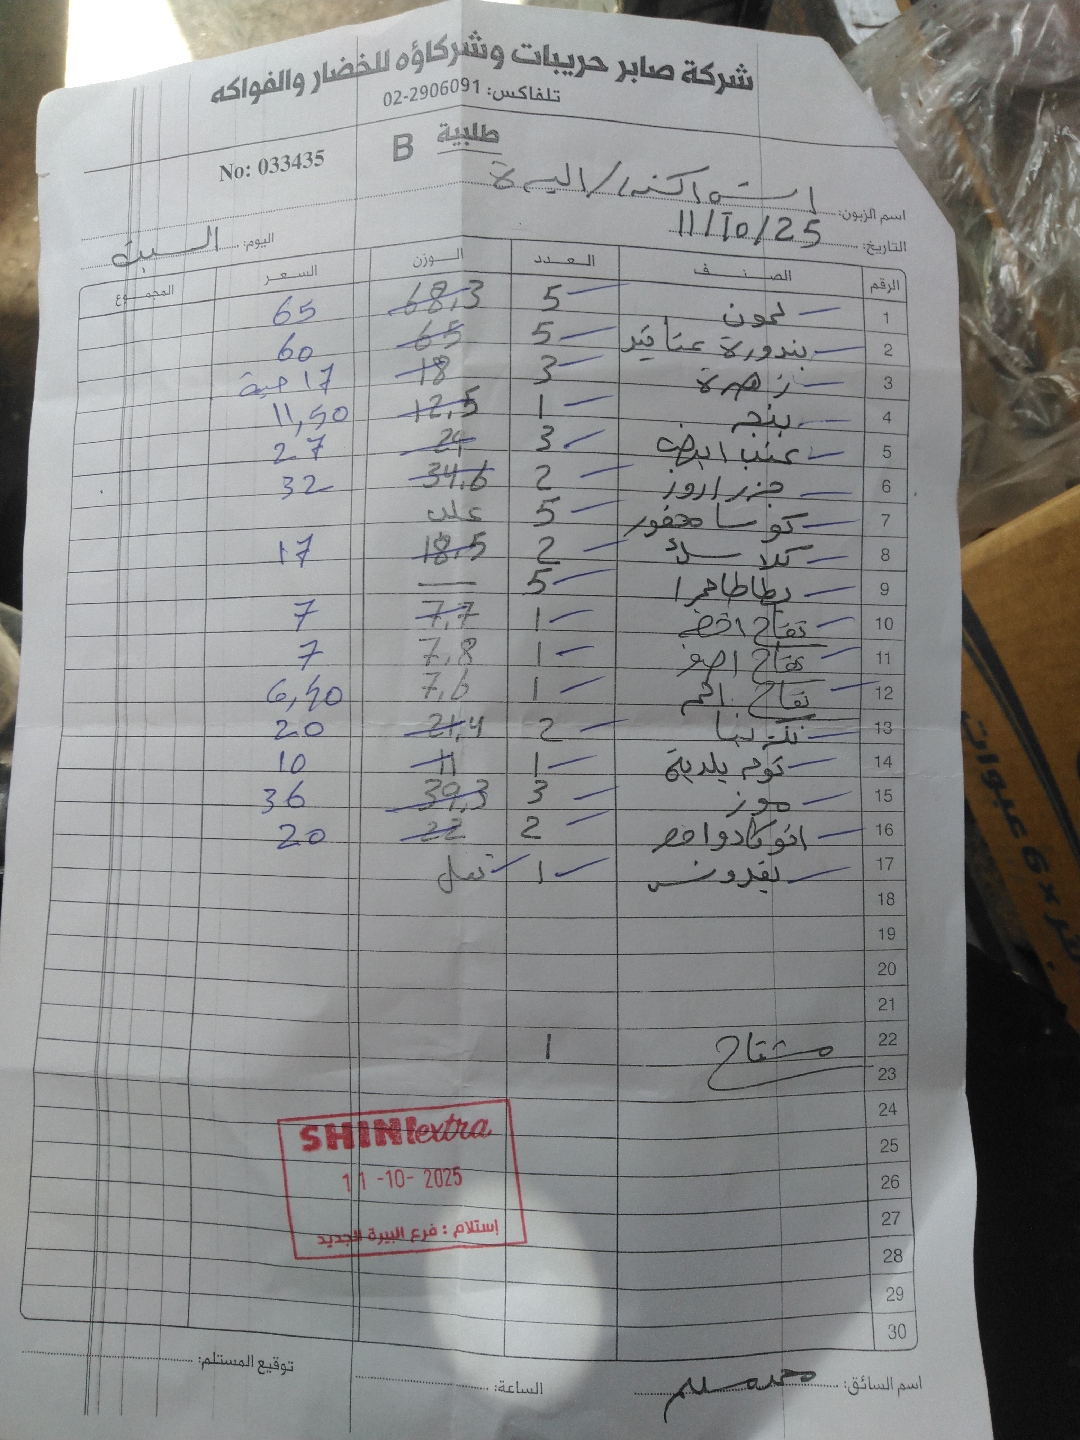 شركة صابر حريبات وشركاؤه للخضار والفواكه
تلفاكس: 02-2906091
طلبية B No: 033435
اسم الزبون: / البيرة
التاريخ: 11/10/25 اليوم: السبت
الرقم الصنف العدد الوزن السعر المجموع
1 ليمون 5 68,3 65
2 بندورة عناقيد 5 65 60
3 زهرة 3 18 17 حبة
4 بنجر 1 12,5 11,50
5 عنب ابيض 3 29 27
6 جزر اروز 2 34,6 32
7 كوسا محفور 5
8 2 18,5 17
9 بطاطا حمرا 5 —
10 تفاح اخضر 1 7,7 7
11 تفاح اصفر 1 7,8 7
12 تفاح احمر 1 7,6 6,50
13 نكترينا 2 21,4 20
14 ثوم بلدية 1 11 10
15 موز 3 39,3 36
16 افوكادو 2 22 20
17 بقدونس 1
18
19
20
21
22 مشتاح 1
23
24
25
26
27
28
29
30
SHINI extra
11-10-2025
إستلام : فرع البيرة الجديد
اسم السائق: الساعة: توقيع المستلم: